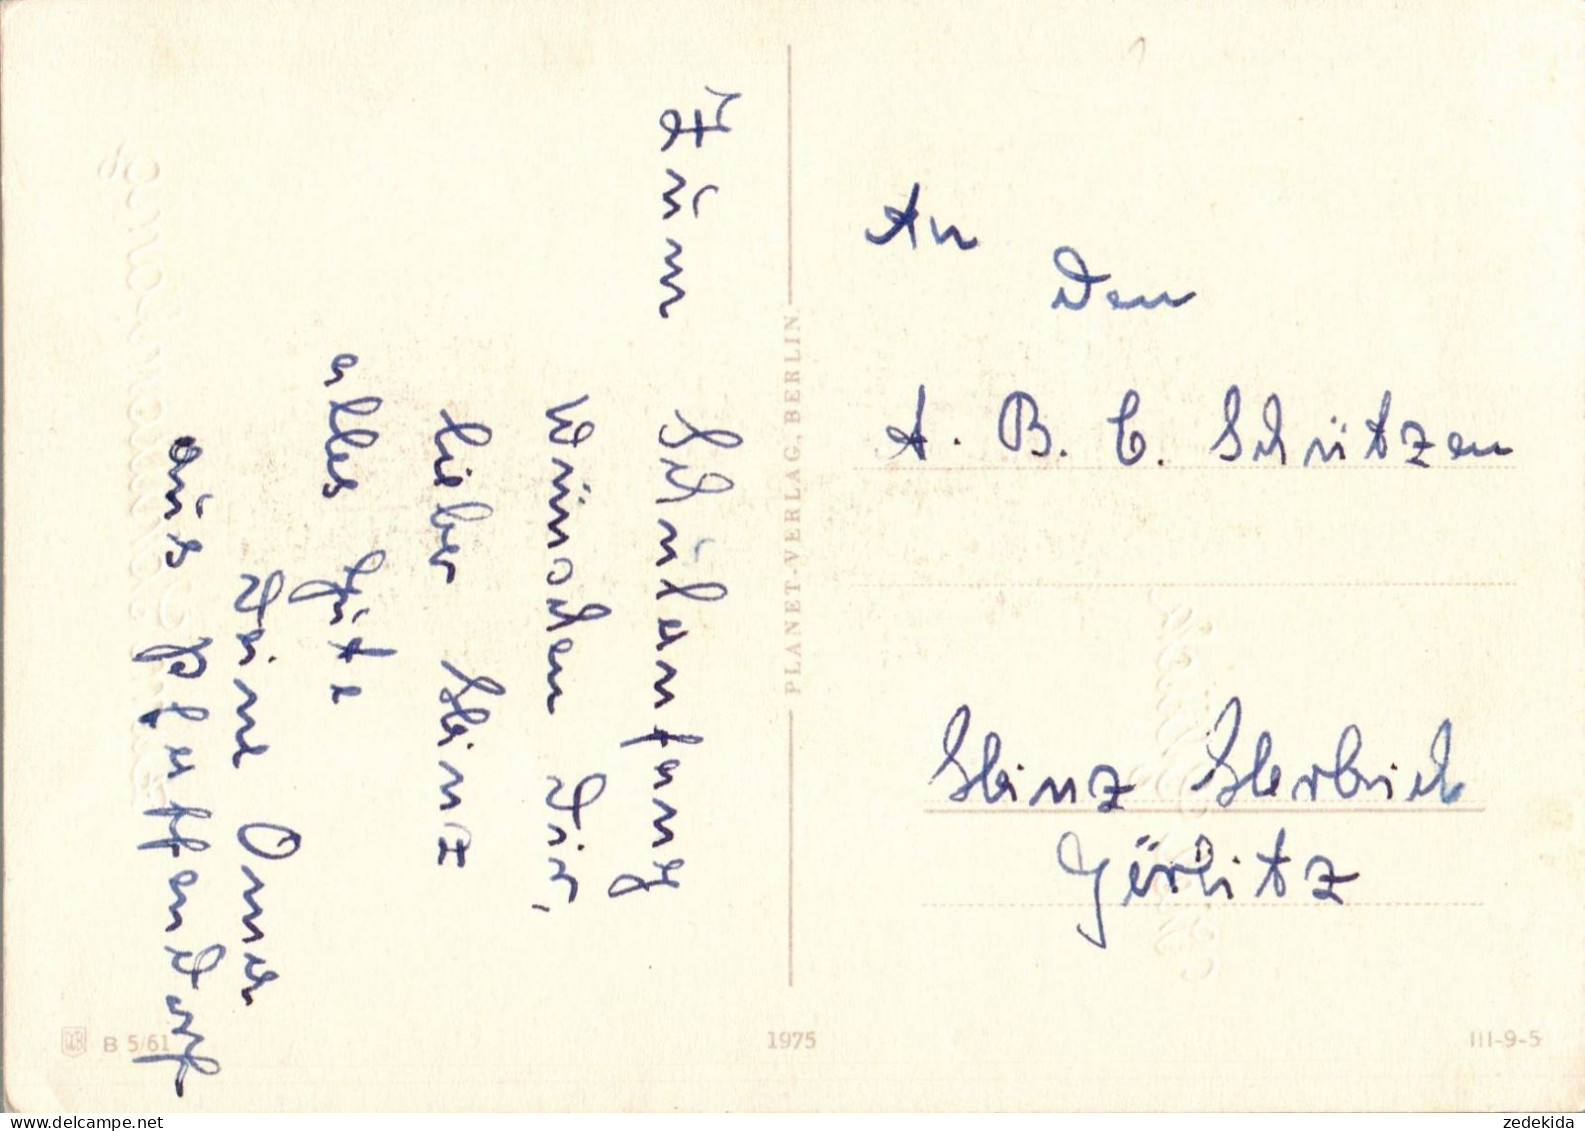 Zum Schulanfang
wünschen Dir,
lieber Heinz
alles Gute
Deine Omer
aus Pfaffendorf
PLANET-VERLAG, BERLIN
An
Den
A. B. C. Schützen
Heinz Herbrich
Görlitz
B 5/61
1975
III-9-5
www.delcampe.net
zedekida